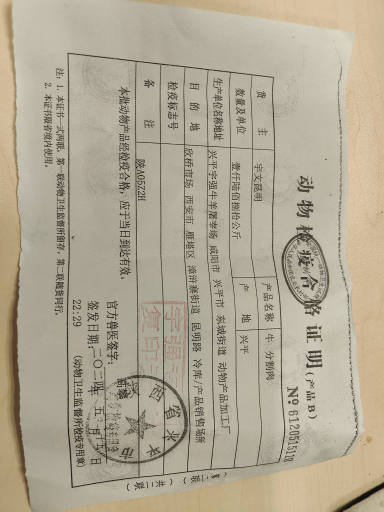 动物检疫合格证明(产品 B)
№ 6120515110
货 主 宇文昆明 产品名称 牛 分割肉
数量及单位 壹仟陆佰捌拾公斤 产 地 兴平
生产单位名称地址 兴平宇强牛羊屠宰场 咸阳市 兴平市 东城街道 动物产品加工厂
目 的 地 欣桥市场 西安市 雁塔区 漳浒寨街道 昆明路 冷库/产品销售场所
检疫标志号
备 注 陕A0572H
本批动物产品经检疫合格,应于当日到达有效。
官方兽医签字:
签发日期:二〇二四年 五月 日
22:29 (动物卫生监督所检疫专用章)
注:1. 本证书一式两联,第一联动物卫生监督所留存,第二联随货同行。
2. 本证书限省境内使用。